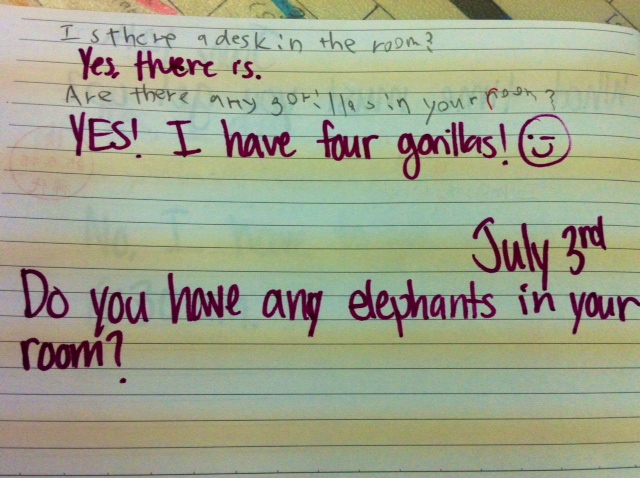 Is there a desk in the room?
Yes, there is.
Are there any gorillas in your room?
YES! I have four gorillas!
July 3rd
Do you have any elephants in your
room?